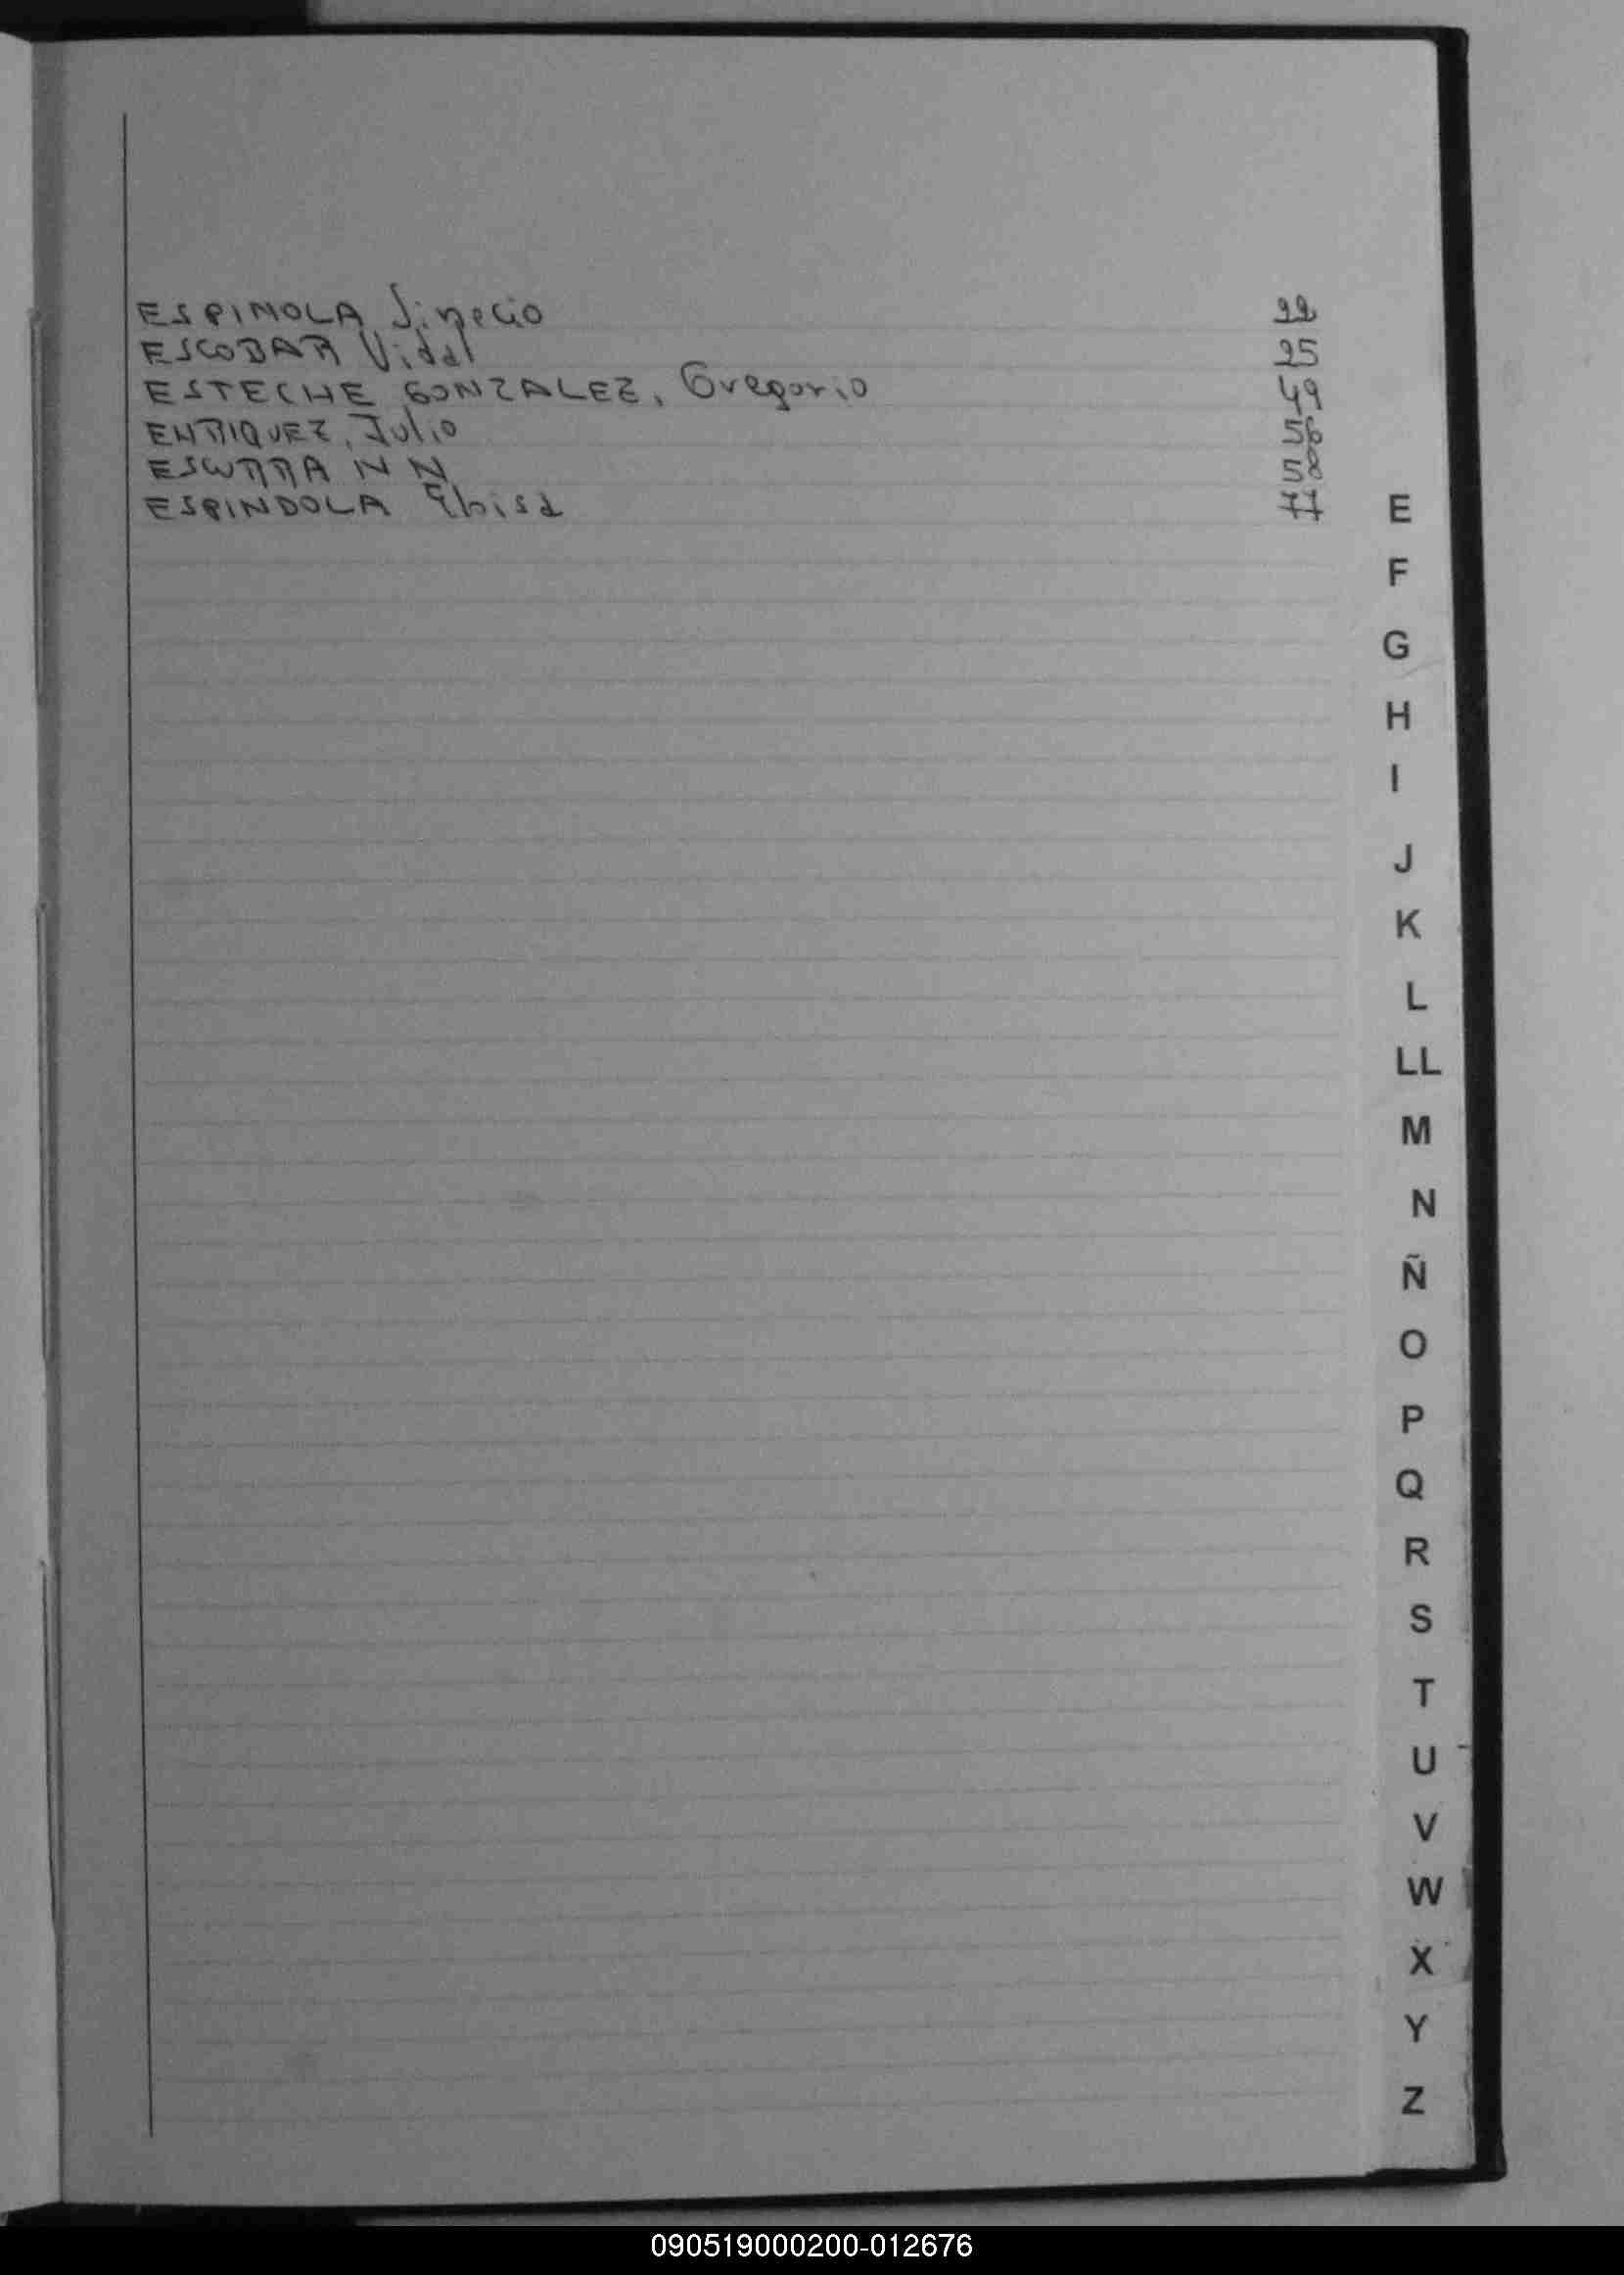 ESPINOLA Sinecio 22
ESCOBAR Vidal 25
ESTECHE GONZALEZ, Gregorio 49
ENRIQUEZ, Julio 56
ESCURRA N N 58
ESPINDOLA 77
E
F
G
H
I
J
K
L
LL
M
N
Ñ
O
P
Q
R
S
T
U
V
W
X
Y
Z
090519000200-012676